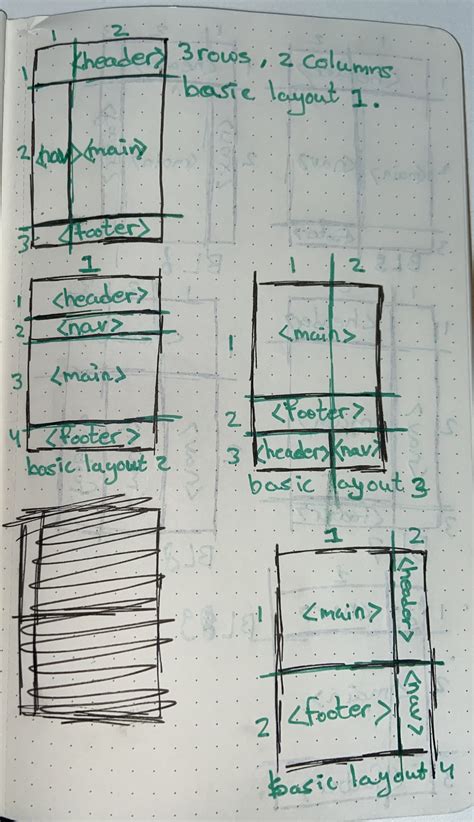 1 2
<header> 3 rows, 2 columns
1
basic layout 1.
2 <nav> <main>
3 <footer>
1
1 <header>
2 <nav>
3 <main>
4 <footer>
basic layout 2
1 2
1 <main>
2 <footer>
3 <header> <nav>
basic layout 3
1 2
1 <main> <header>
2 <footer> <nav>
basic layout 4